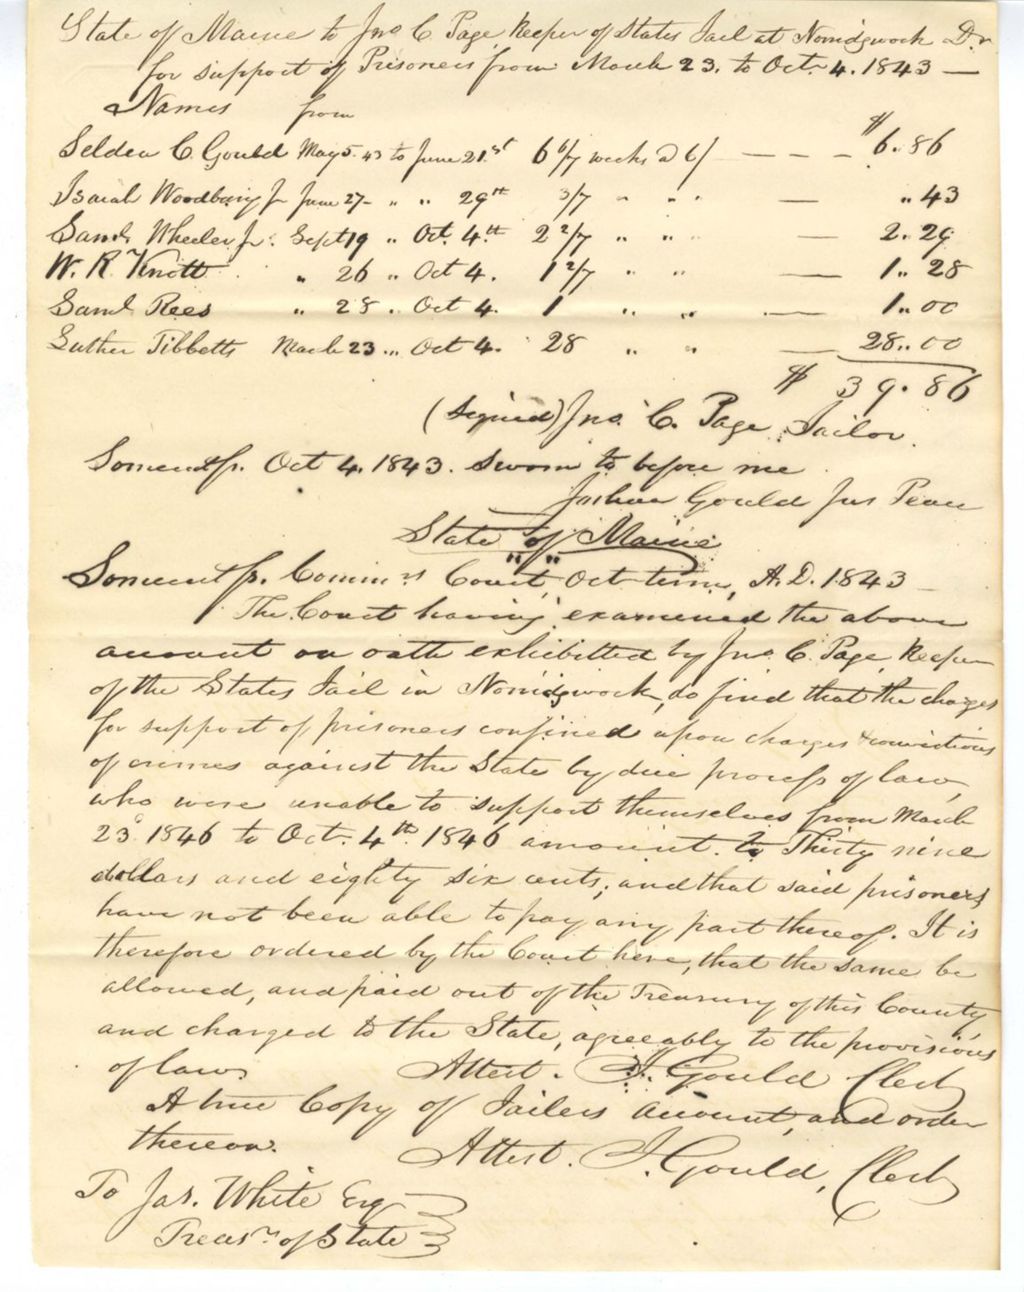 State of Maine to Jno C. Page Keeper of States Jail at Norridgwock Dr.
for support of Prisoners from March 23. to Oct. 4. 1843 —
Names from
Selden C. Gould May 5. 43 to June 21st 6 6/7 weeks @ 6/ — — — $6.86
Isaiah Woodbury Jr June 27 - " " 29th 3/7 " " " — " 43
Saml Wheeler Jr. Sept 19 " Oct. 4th 2 2/7 " " " — 2. 29
W. R. Knott " 26 " Oct 4. 1 2/7 " " — 1.. 28
Saml Rees " 28 .. Oct 4. 1 " " — 1.. 00
Luther Tibbetts March 23 .. Oct 4. 28 " " — 28.. 00
$ 39. 86
(Signed) Jno. C. Page Jailor.
Somerset ss. Oct 4. 1843. Sworn to before me
Joshua Gould Jus Peace
State of Maine
Somerset ss. Comm rs Court, Oct. term, A. D. 1843 —
The Court having examined the above
account on oath exhibitted by Jno C. Page Keeper
of the States Jail in Norridgwock, do find that the charges
for support of prisoners confined upon charges & convictions
of crimes against the State by due process of law,
who were unable to support themselves from March
23d 1846 to Oct. 4th 1846 amount to Thirty nine
dollars and eighty six cents; and that said prisoners
have not been able to pay any part thereof. It is
therefore ordered by the Court here, that the same be
allowed, and paid out of the Treasury of this County
and charged to the State, agreeably to the provisions
of law. Attest. J. Gould Clerk
A true Copy of Jailers account, and order
thereon. Attest. J. Gould, Clerk
To Jas. White Esq
Treasr of State